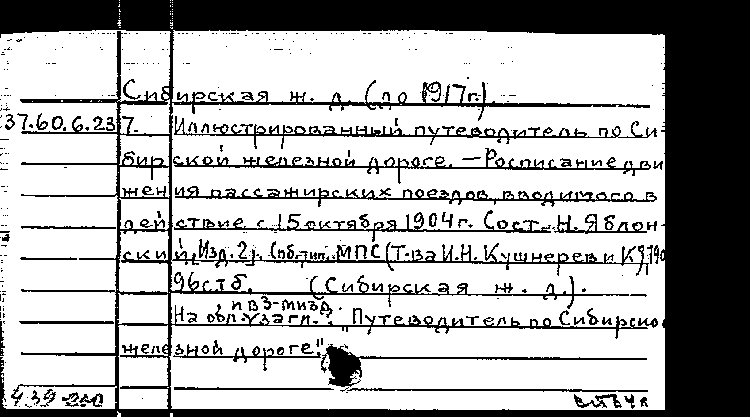 Сибирская ж. д. (до 1917г.)
37.60.6.23 7. Иллюстрированный путеводитель по Си-
бирской железной дороге. — Росписание дви
жения пассажирских поездов, вводимого в
действие с 15 октября 1904 г. Сост. Н. Яблон-
ский, Изд. 2. Спб. тип. МПС (Т-ва И.Н. Кушнерев и К), 190
96 стб. (Сибирская ж. д.).
На обл. загл.: "Путеводитель по Сибирско
железной дороге".
439